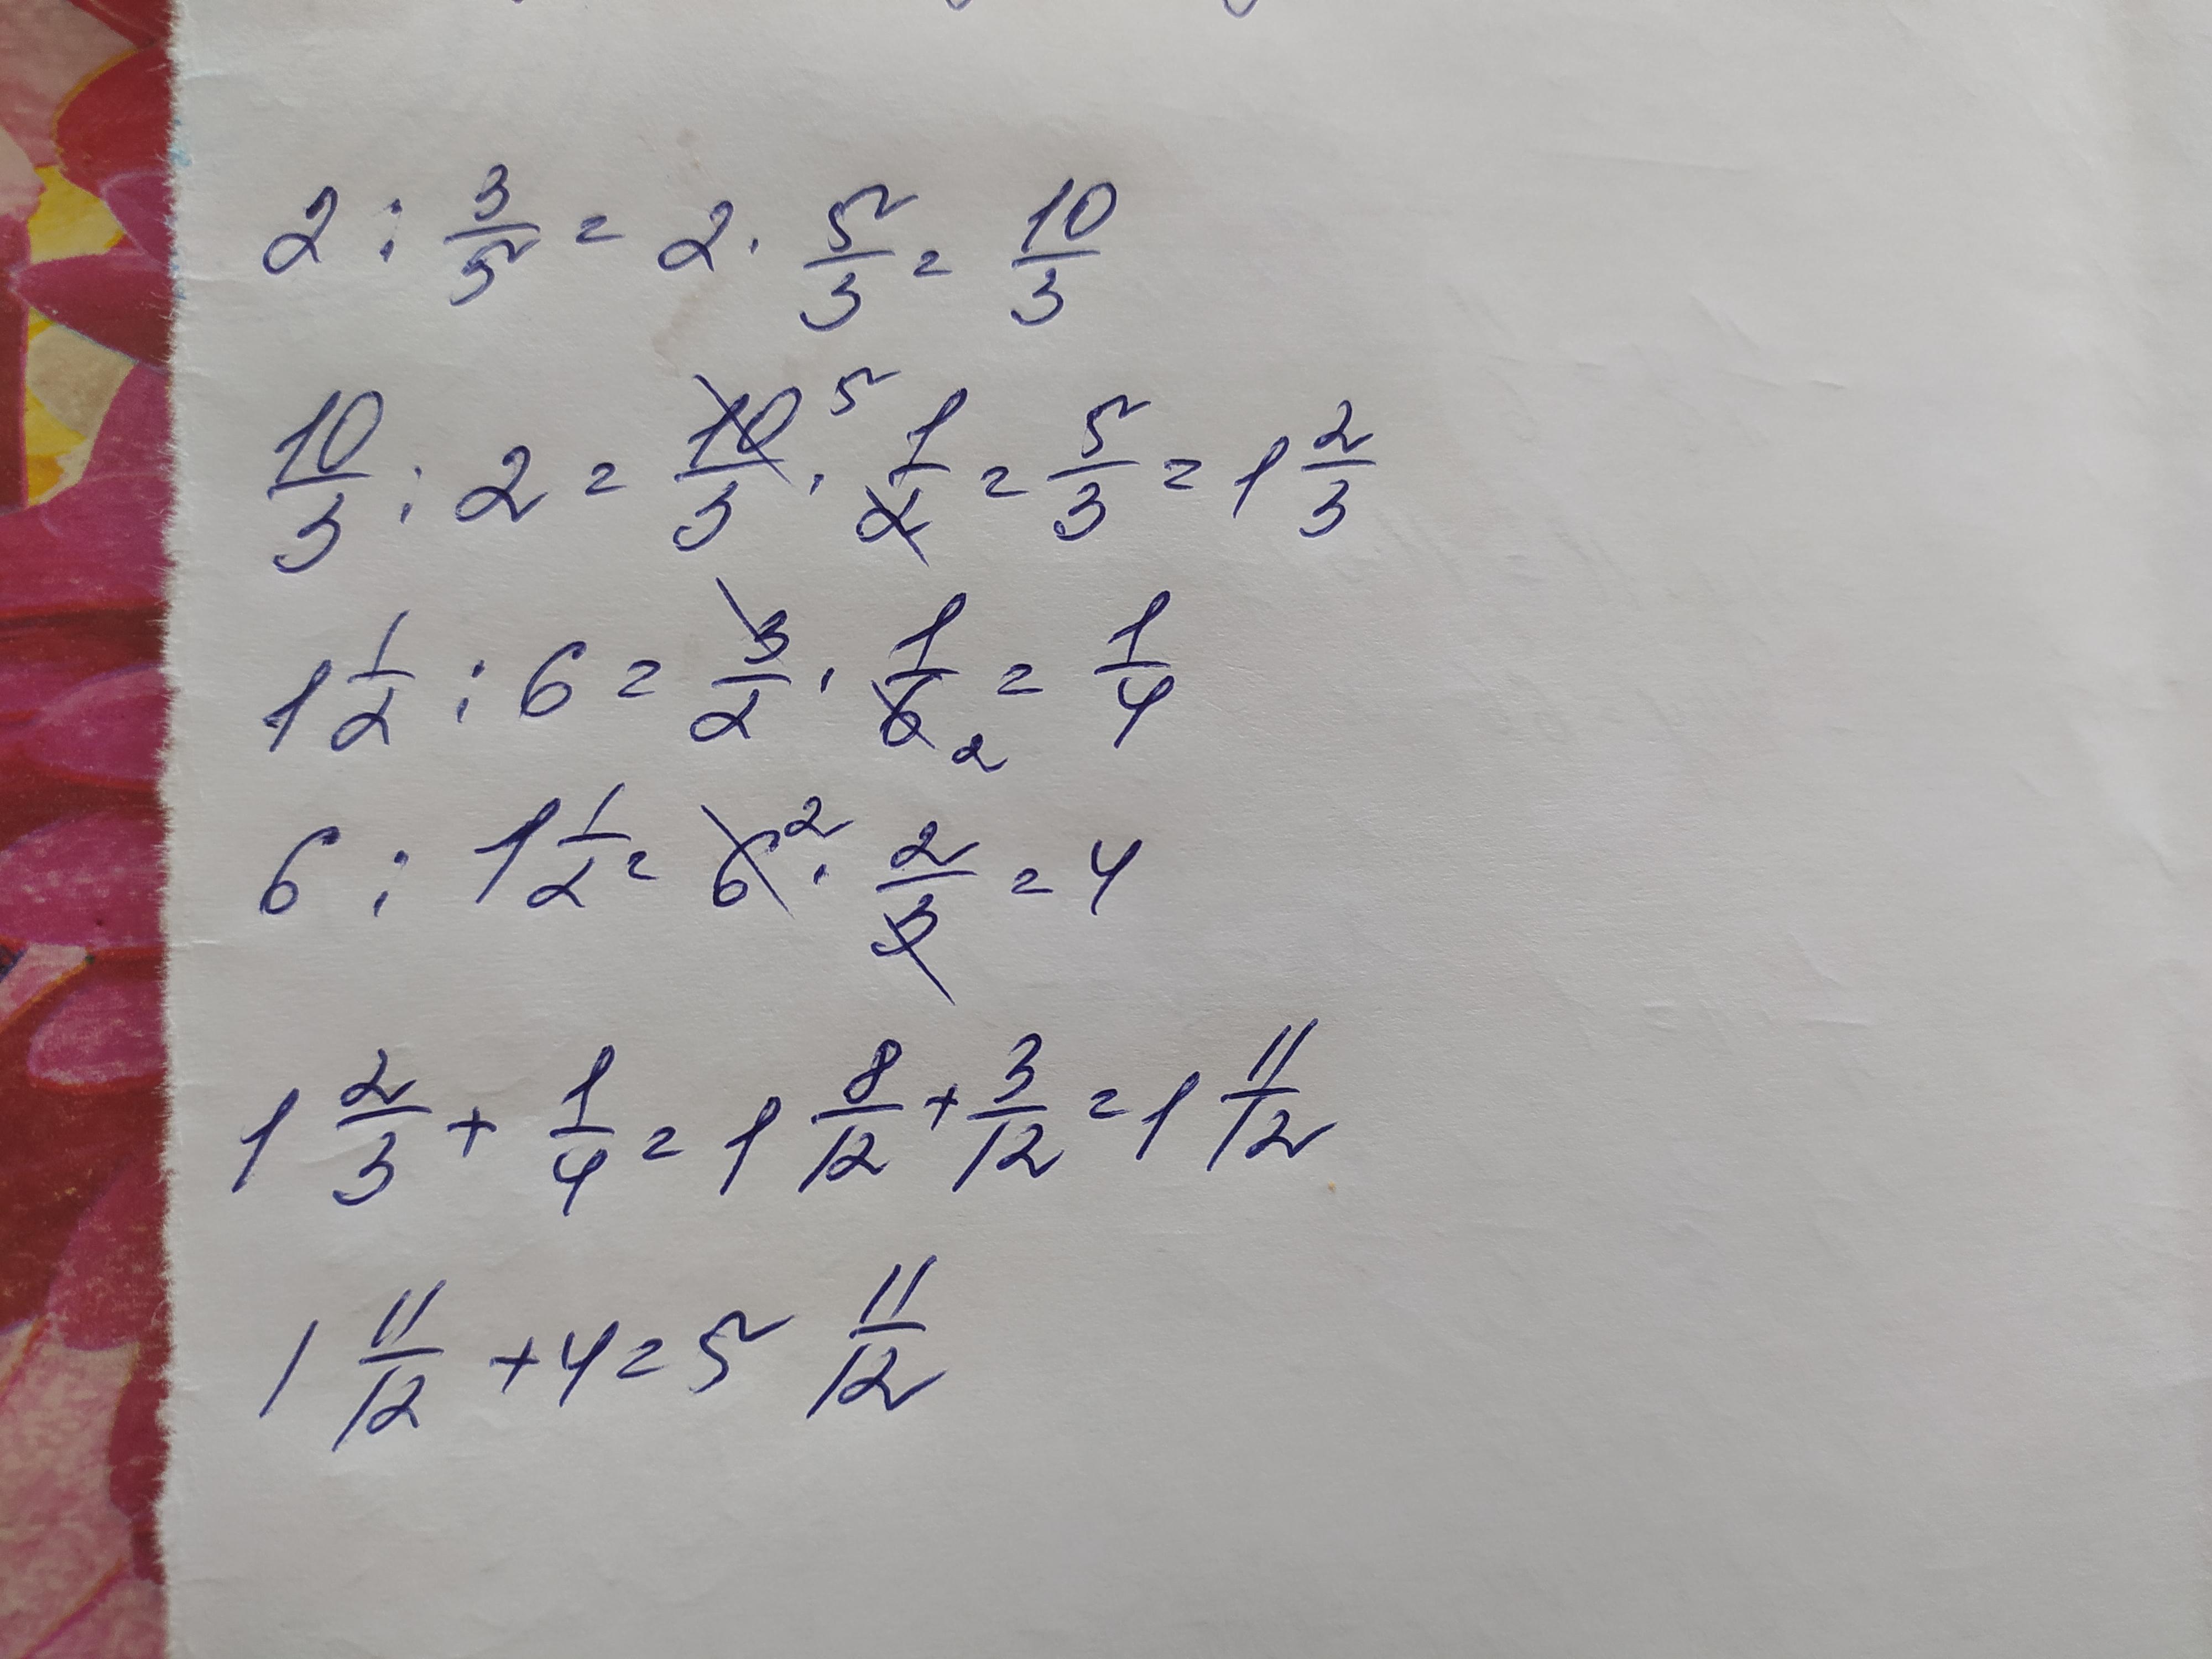 2 : 3/5 = 2 · 5/3 = 10/3
10/3 : 2 = 10/3 5 · 1/2 = 5/3 = 1 2/3
1 1/2 : 6 = 3/2 · 1/6 2 = 1/4
6 : 1 1/2 = 6 2 · 2/3 = 4
1 2/3 + 1/4 = 1 8/12 + 3/12 = 1 11/12
1 11/12 + 4 = 5 11/12